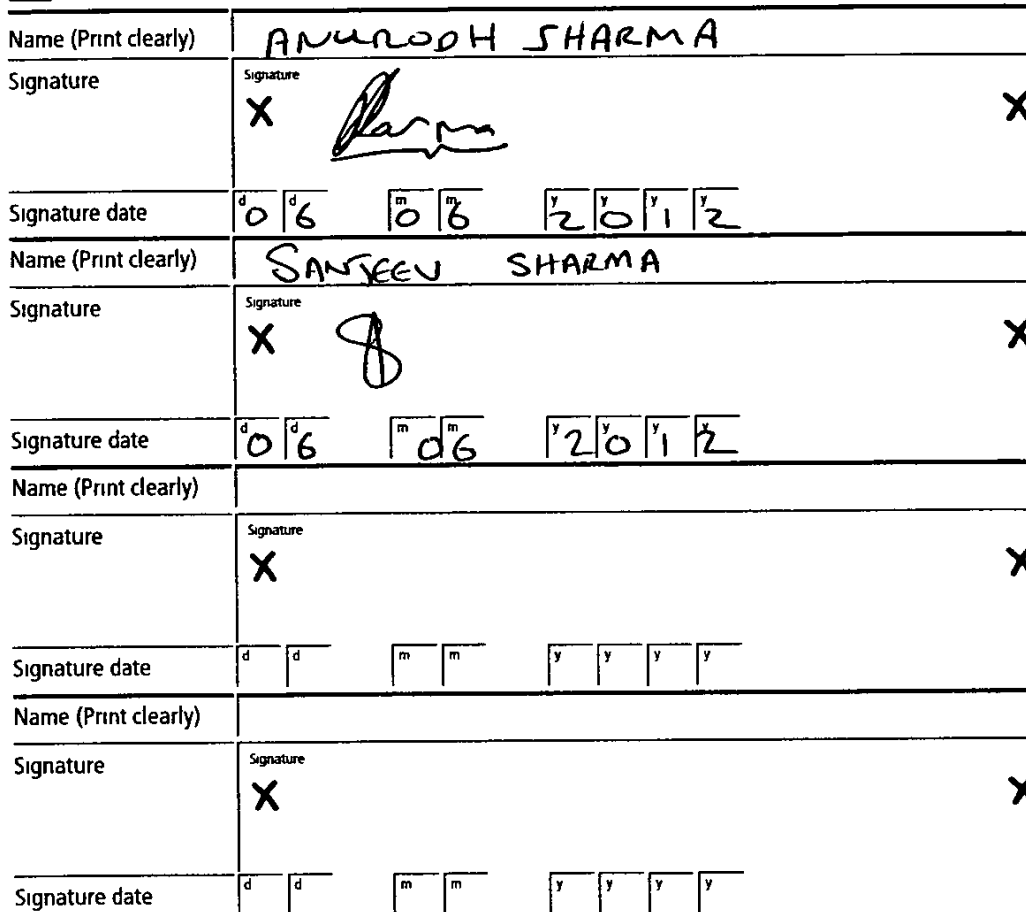 Name (Print clearly) ANURODH SHARMA
Signature Signature
X Sharma X
Signature date d0 d6 m0 m6 y2 y0 y1 y2
Name (Print clearly) SANJEEV SHARMA
Signature Signature
X X
Signature date d0 d6 m0 m6 y2 y0 y1 y2
Name (Print clearly)
Signature Signature
X X
Signature date d d m m y y y y
Name (Print clearly)
Signature Signature
X X
Signature date d d m m y y y y